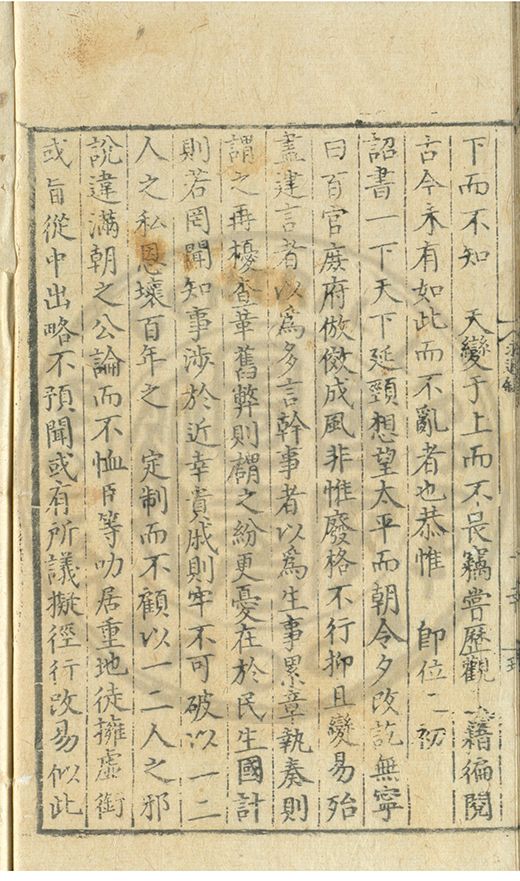 下而不知　天變于上而不畏竊嘗歷觀　籍徧閱
古今未有如此而不亂者也恭惟　卽位之初
詔書一下天下延頸想望太平而朝令夕改訖無寧
日百官庶府倣傚成風非惟廢格不行抑且變易殆
盡建言者以爲多言幹事者以爲生事累章執奏則
謂之再擾查革舊弊則謂之紛更憂在於民生國計
則若罔聞知事涉於近幸貴戚則牢不可破以一二
人之私恩壞百年之　定制而不顧以一二人之邪
說違滿朝之公論而不恤臣等叨居重地徒擁虛銜
或旨從中出略不預聞或有所議擬徑行改易似此